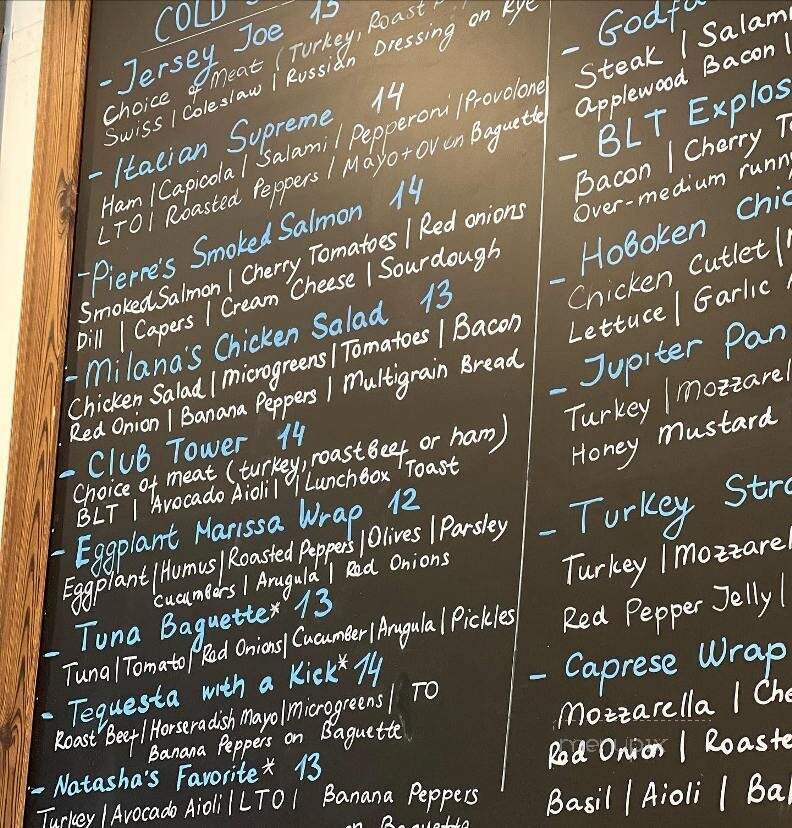 COLD
- Jersey Joe 13
Choice of Meat (Turkey, Roast
Swiss | Coleslaw | Russian Dressing on Rye
- Italian Supreme 14
Ham | Capicola | Salami | Pepperoni | Provolone
LTO | Roasted Peppers | Mayo + OV on Baguette
- Pierre's Smoked Salmon 14
Smoked Salmon | Cherry Tomatoes | Red onions
Dill | Capers | Cream Cheese | Sourdough
- Milana's Chicken Salad 13
Chicken Salad | microgreens | Tomatoes | Bacon
Red Onion | Banana Peppers | Multigrain Bread
- Club Tower 14
Choice of meat (turkey, roast beef or ham)
BLT | Avocado Aioli | Lunchbox Toast
- Eggplant Marissa Wrap 12
Eggplant | Humus | Roasted Peppers | Olives | Parsley
cucumbers | Arugula | Red Onions
- Tuna Baguette* 13
Tuna | Tomato | Red Onions | Cucumber | Arugula | Pickles
- Tequesta with a Kick* 14
Roast Beef | Horseradish Mayo | Microgreens | TO
Banana Peppers on Baguette
- Natasha's Favorite* 13
Turkey | Avocado Aioli | LTO | Banana Peppers
on Baguette
- Godfa
Steak | Salami
Applewood Bacon |
- BLT Explos
Bacon | Cherry To
Over-medium runny
- Hoboken Chic
Chicken Cutlet |
Lettuce | Garlic
- Jupiter Pan
Turkey | Mozzarel
Honey Mustard
- Turkey Stro
Turkey | Mozzarel
Red Pepper Jelly |
- Caprese Wrap
Mozzarella | Che
Red Onion | Roaste
Basil | Aioli | Bal
menupix